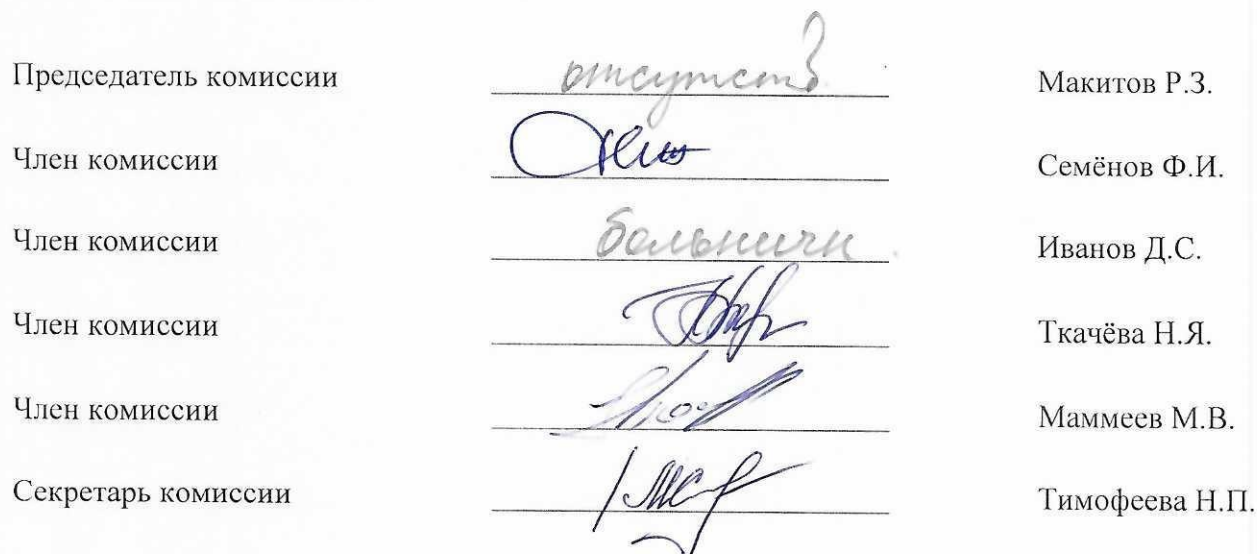 Председатель комиссии отсутств Макитов Р.З.
Член комиссии Семёнов Ф.И.
Член комиссии больничн Иванов Д.С.
Член комиссии Ткачёва Н.Я.
Член комиссии Маммеев М.В.
Секретарь комиссии Тимофеева Н.П.